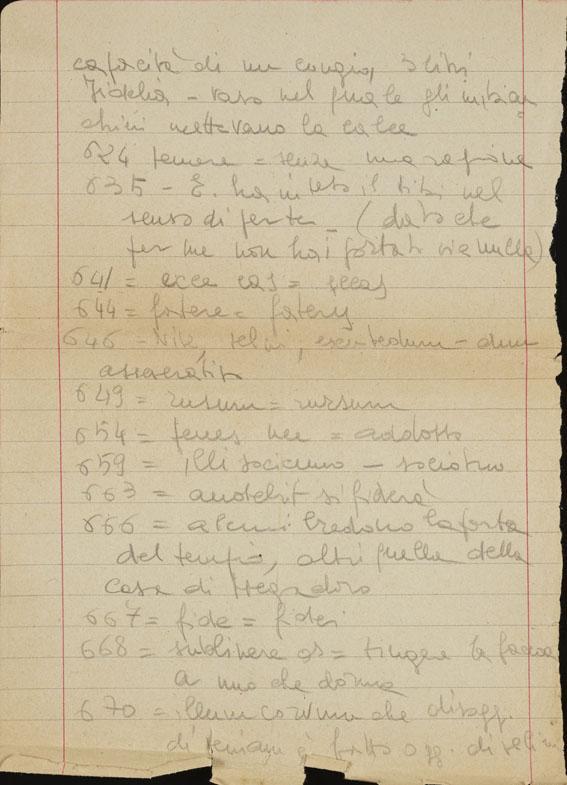 capacità di un congio, 3 litri
Fidelia - vaso nel quale gli imbian=
chini mettevano la calce
624 temere = senza una ragione
635 - E. ha inteso il tibi nel
senso di per te - (dato che
per me non hai portato via nulla)
641 = ecce eas = eccas
644 = fatere = fateris
646 - 
asseveratis
649 = rusum = rursum
654 = penes me = addosso
659 = illi socienno - socio tuo
663 = si fiderà
666 = alcuni credono la porta
del tempio, altri quella della
casa di Megadoro
667 = fide = fidei
668 = sublinere os = tingere la faccia
a uno che dorma
670 = illum corvum che
è fatto ogg. di